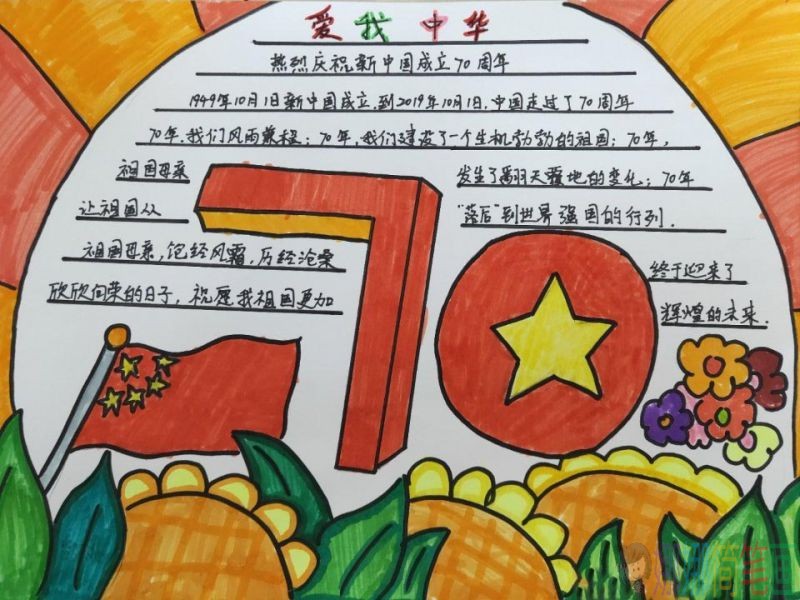 爱我中华
热烈庆祝新中国成立70周年
1949年10月1日新中国成立,到2019年10月1日,中国走过了70周年
70年,我们风雨兼程;70年,我们建设了一个生机勃勃的祖国;70年,
祖国母亲 发生了翻天覆地的变化;70年
让祖国从 "落后"到世界强国的行列.
祖国母亲,饱经风霜,历经沧桑 终于迎来了
欣欣向荣的日子,祝愿我祖国更加 辉煌的未来.
70